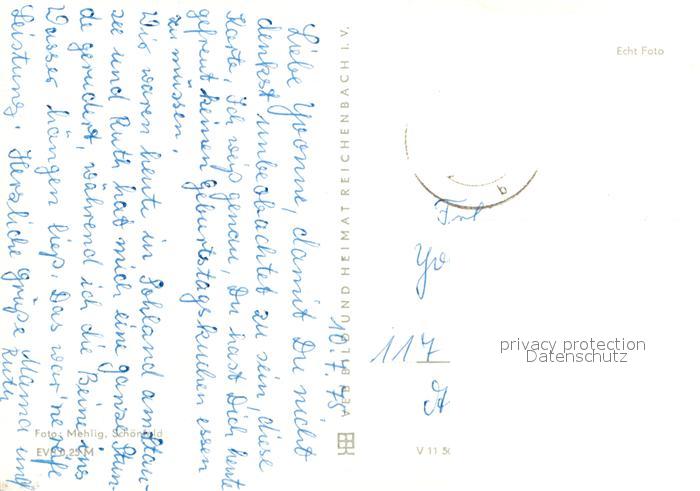 10.7.75
Liebe Yvonne, damit Du nicht
denkst unbeobachtet zu sein, diese
Karte. Ich weiß genau, Du hast Dich heute
gefreut keinen Geburtstagskuchen essen
zu müssen.
Wir waren heute in Sohland am Stau-
see und Ruth hat mich eine ganze Stun-
de gerudert, während ich die Beine ins
Wasser hängen ließ. Das war 'ne reife
Leistung. Herzliche Grüße Mama und
Ruth
Foto: Mehlig, Schönfeld
EVP 0,25 M
VEB BILD UND HEIMAT REICHENBACH I. V.
Echt Foto
117
privacy protection
Datenschutz
V 11